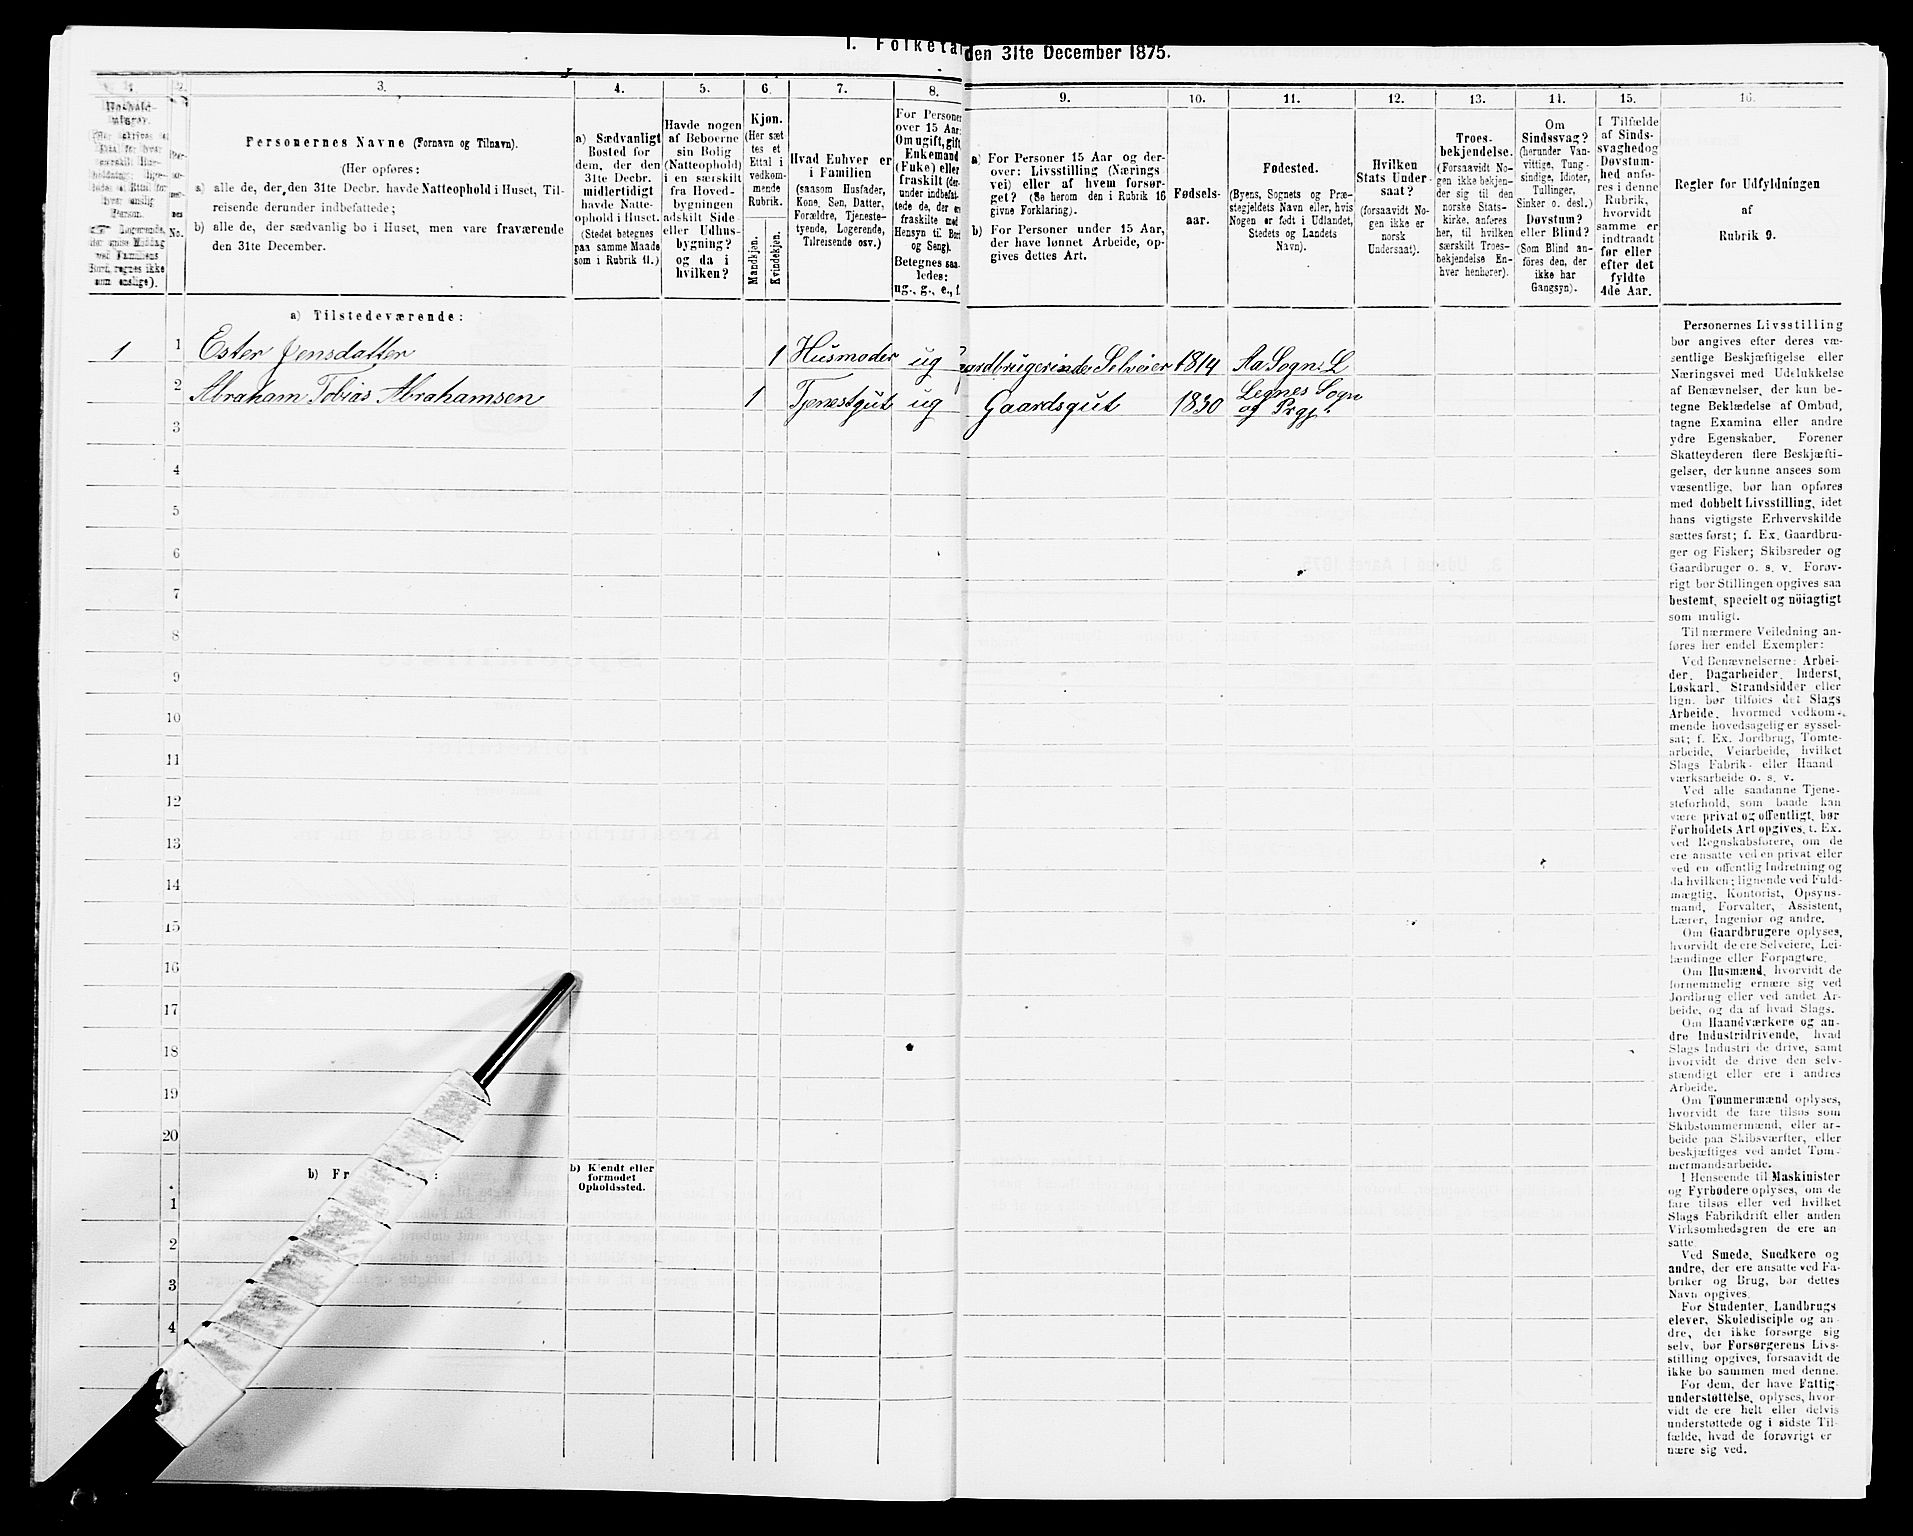 I. Folketæ den 31te December 1875.
3.
4.
5.
6.
7.
8.
9.
10.
11.
12.
13.
14.
15.
16.
Personernes Navne (Fornavn og Tilnavn).
(Her opføres:
a) alle de, der den 31te Decbr. havde Natteophold i Huset, Til-
reisende derunder indbefattede;
b) alle de, der sædvanlig bo i Huset, men vare fraværende
den 31te December.
a) Sædvanligt
Bosted for
dem, der den
31te Decbr.
midlertidigt
havde Natte-
ophold i Huset.
(Stedet betegnes
paa samme Maade
som i Rubrik 11.)
Havde nogen
af Beboerne
sin Bolig
(Natteophold)
i en særskilt
fra Hoved-
bygningen
adskilt Side-
eller Udhus-
bygning?
og da i
hvilken?
Kjøn.
(Her sæt
tes et
Ettal i
vedkom-
mende
Rubrik.
Mandkjøn.
Kvindekjøn.
Hvad Enhver er
i Familien
(saasom Husfader,
Kone, Søn, Datter,
Forældre, Tjeneste-
tyende, Logerende,
Tilreisende osv.)
For Persone
over 15 Aar:
Om ugift, gift
Enkemand
(Enke) eller
fraskilt (der-
under indbefat-
tede de, der ere
fraskilte med
Hensyn til Bord
og Seng).
Betegnes saa-
ledes:
ug., g., e., f.
a) For Personer 15 Aar og der-
over: Livsstilling (Nærings
vei) eller af hvem forsør-
get? (Se herom den i Rubrik 16
givne Forklaring).
b) For Personer under 15 Aar,
der have lønnet Arbeide, op-
gives dettes Art.
Fødsels-
aar.
Fødested.
(Byens, Sognets og Præ-
stegjeldets Navn eller, hvis
Nogen er født i Udlandet,
Stedets og Landets
Navn).
Hvilken
Stats Under
saat?
(forsaavidt No-
gen ikke er
norsk
Undersaat).
Troes-
bekjendelse.
(Forsaavidt No-
gen ikke bekjen-
der sig til den
norske Stats-
kirke, anføres
her, til hvilken
særskilt Troes-
bekjendelse En-
hver henhører).
Om
Sindssvag?
(herunder Van-
vittige, Tung-
sindige, Idioter,
Tullinger,
Sinker o. desl.)
Døvstum?
eller Blind?
(Som Blind an-
føres den, der
ikke har
Gangsyn).
I Tilfælde
af Sinds-
svaghed og
Døvstum-
hed anfø-
res i denne
Rubrik,
hvorvidt
samme er
indtraadt
før eller
efter det
fyldte
4de Aar.
Regler for Udfyldningen
af
Rubrik 9.
a) Tilstedeværende:
1 1 Ester Jensdatter 1 Husmoder ug Gaardbrugerinde Selveier 1814 Aa Sogn L
2 Abraham Tobias Abrahamsen 1 Tjenestgut ug Gaardsgut 1830 Legnes Sogn
og Prgj.
3
4
5
6
7
8
9
10
11
12
13
14
15
16
17
18
19
20
b) Fr :
b) Kjendt eller
formodet
Opholdssted.
1
2
3
4
Personernes Livsstilling
bør angives efter deres væ-
sentlige Beskjæftigelse eller
Næringsvei med Udelukkelse
af Benævnelser, der kun be-
tegne Beklædelse af Ombud,
tagne Examina eller andre
ydre Egenskaber. Forener
Skatteyderen flere Beskjæfti-
gelser, der kunne ansees som
væsentlige, bør han opføres
med dobbelt Livsstilling, idet
hans vigtigste Erhvervskilde
sættes først; f. Ex. Gaardbru-
ger og Fisker; Skibsreder og
Gaardbruger o. s. v. Forøv-
rigt bør Stillingen opgives saa
bestemt, specielt og nöiagtigt
som muligt.
Til nærmere Veiledning an-
føres her endel Exempler:
Ved Benævnelserne: Arbei-
der, Dagarbeider, Inderst,
Løskarl, Strandsidder eller
lign. bør tilføies det Slags
Arbeide, hvormed vedkom-
mende hovedsagelig er syssel-
sat; f. Ex. Jordbrug, Tomte-
arbeide, Veiarbeide, hvilket
Slags Fabrik- eller Haand
værksarbeide o. s. v.
Ved alle saadanne Tjene-
steforhold, som baade kan
være privat og offentligt, bør
Forholdets Art opgives, f. Ex.
ved Regnskabsførere, om de
ere ansatte ved en privat eller
ved en offentlig Indretning og
da hvilken; lignende ved Fuld-
mægtig, Kontorist, Opsyns-
mand, Forvalter, Assistent,
Lærer, Ingeniør og andre.
Om Gaardbrugere oplyses,
hvorvidt de ere Selveiere, Lei-
lændinge eller Forpagtere.
Om Husmænd, hvorvidt de
fornemmelig ernære sig ved
Jordbrug eller ved andet Ar-
beide, og da af hvad Slags.
Om Haandværkere og an-
dre Industridrivende, hvad
Slags Industri de drive, samt
hvorvidt de drive den selv-
stændigt eller ere i andres
Arbeide.
Om Tømmermænd oplyses,
hvorvidt de fare tilsøs som
Skibstømmermænd, eller ar-
beide paa Skibsværfter, eller
beskjæftiges ved andet Tøm-
mermandsarbeide.
I Henseende til Maskinister
og Fyrbødere oplyses, om de
fare tilsøs eller ved hvilket
Slags Fabrikdrift eller anden
Virksomhedsgren de ere an-
satte.
Ved Smede, Snedkere og
andre, der ere ansatte ved Fa-
briker og Brug, bør dettes
Navn opgives.
For Studenter, Landbrugs
elever, Skoledisciple og an-
dre, der ikke forsørge sig
selv, bør Forsørgerens Livs-
stilling opgives, forsaavidt de
ikke bo sammen med denne.
For dem, der have Fattig-
understøttelse, oplyses, hvor-
vidt de ere helt eller delvis
understøttede og i sidste Til-
fælde, hvad de forøvrigt er
nære sig ved.